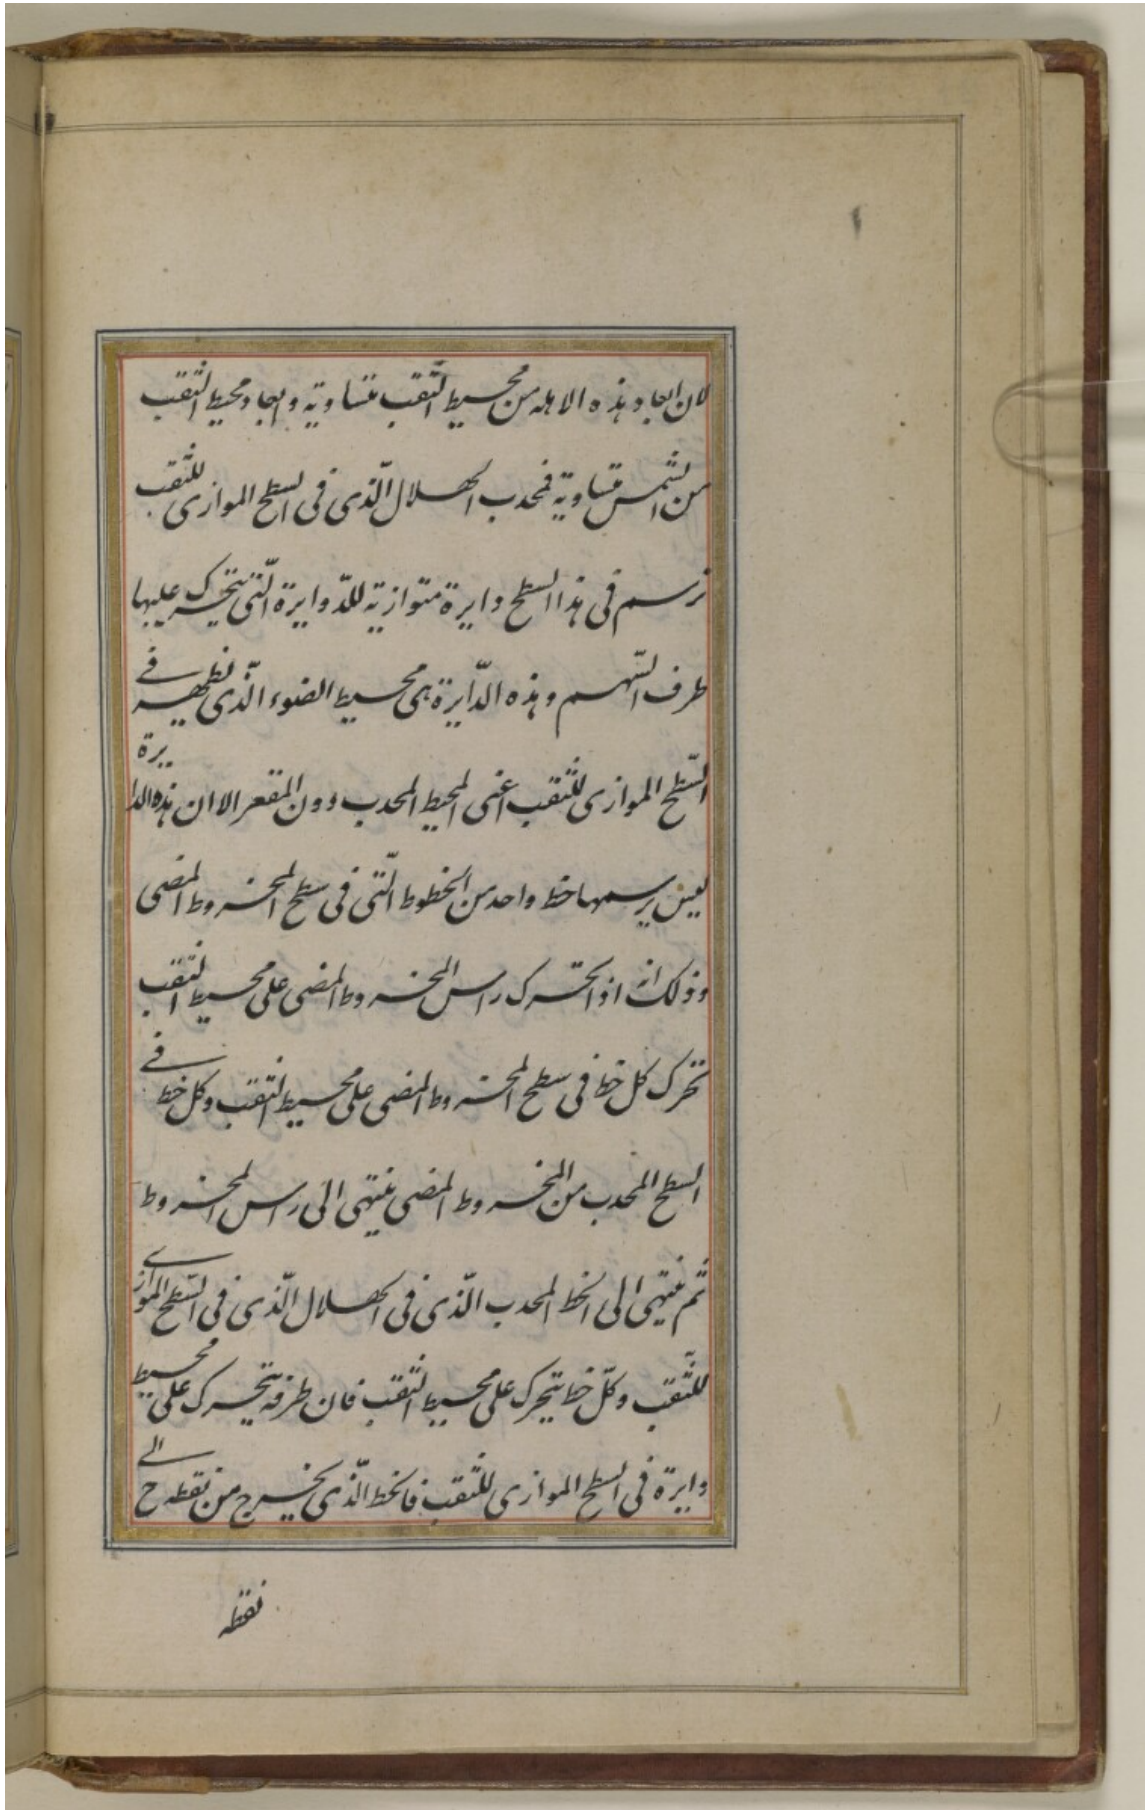 لان ابعاد هذه الاهله من محيط الثقب متساوية وابعاد محيط الثقب
من الشمس متساوية فمحدب الهلال الّذى فى السطح الموازى للثقب
ترسم فى هذا السطح دايرة متوازية للدّوايرة الّتى يتحرك عليها
طرف السّهم وهذه الدّايرة هى محيط الضوء الّذى نظهر فے
السّطح الموازى للثقب اعنى المحيط المحدب دون المقعر الا ان هذه الدايرة
يعين يرسمها خط واحد من الخطوط الّتى فى سطح المخروط المضى
وذلك انه اذا تحرك راس المخروط المضى على محيط الثقب
تحرك كل خط فى سطح المخروط المضى على محيط الثقب وكل خط فے
السطح المحدب من المخروط المضى ينتهى الى راس المخروط
ثم ينتهى الى الخط المحدب الّذى فى الهلال الّذى فى السّطح الموازے
للثّقب وكلّ خط يتحرك على محيط الثقب فان طرفه يتحرك على محيط
دايرة فى السطح الموازى للثقب فالخط الّذى يخرج من نقطه ح الے
نقطه